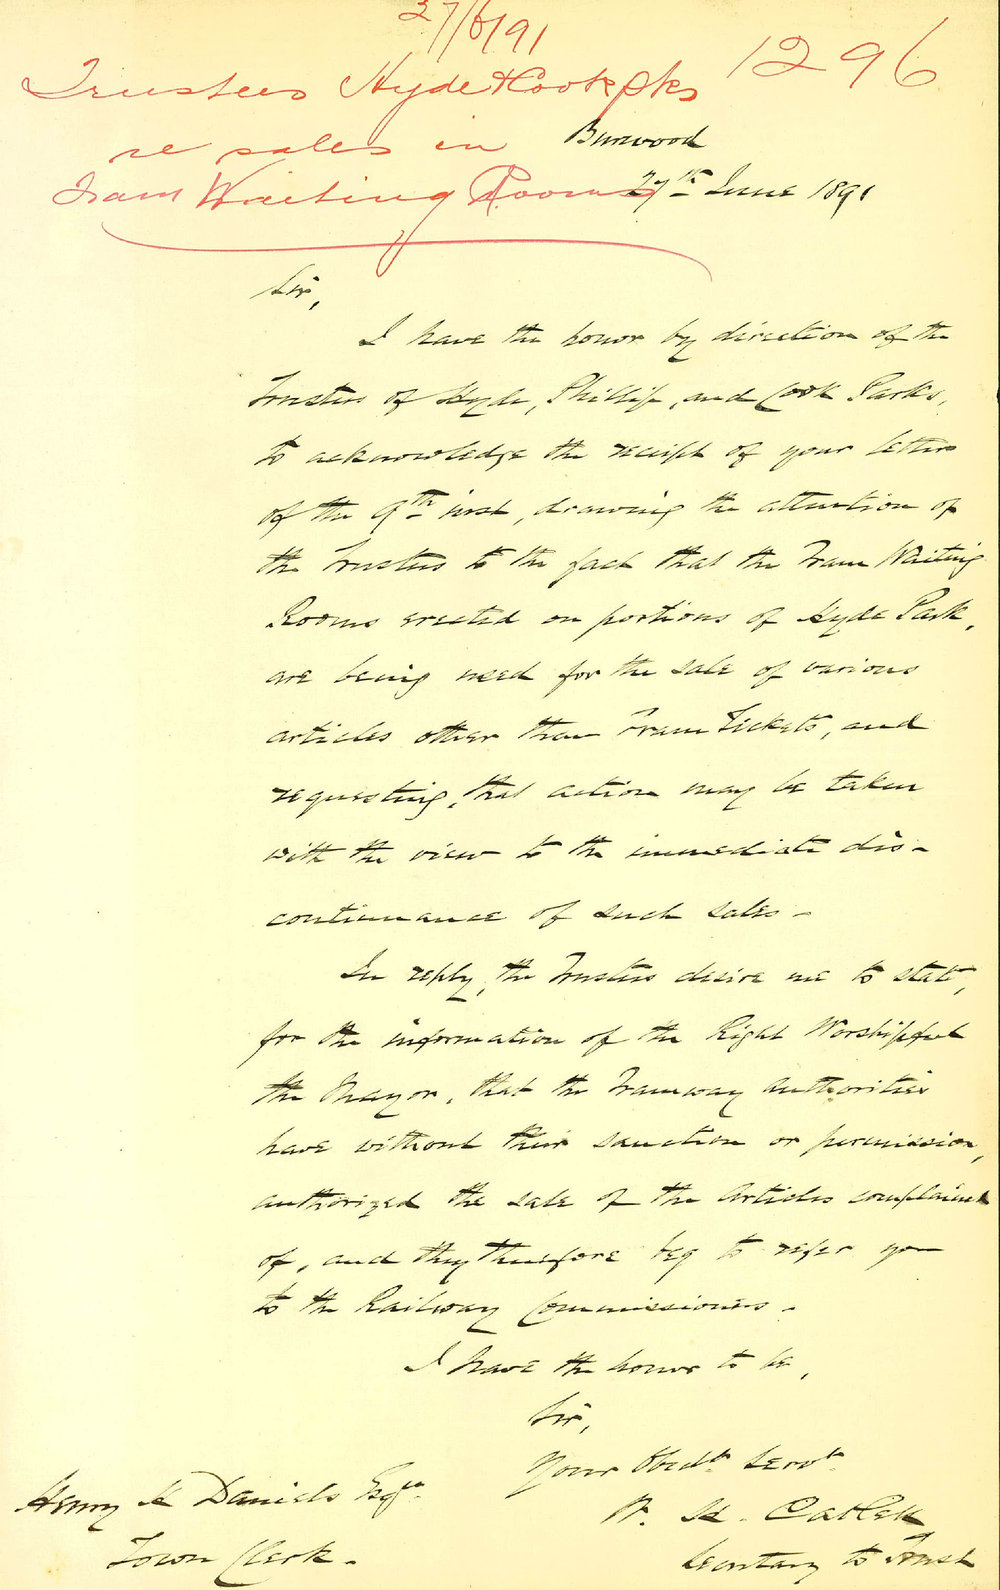 27/6/91
1296
Trustees Hyde & Cook Pks
re sales in
Tram Waiting Rooms
Burwood
27th June 1891
Sir,
I have the honor by direction of the
Trustees of Hyde, Phillip, and Cook Parks,
to acknowledge the receipt of your letter
of the 9th inst, drawing the attention of
the Trustees to the fact that the Tram Waiting
Rooms erected on portions of Hyde Park,
are being used for the sale of various
articles other than Tram Tickets, and
requesting, that action may be taken
with the view to the immediate dis-
continuance of such sales -
In reply, the Trustees desire me to state,
for the information of the Right Worshipful
the Mayor, that the Tramway Authorities
have without their sanction or permission,
authorized the sale of the Articles complained
of, and they therefore beg to refer you
to the Railway Commissioners -
I have the honor to be,
Sir,
Your Obedt Servt
W. H. Catlett
Secretary to Trust
Henry H Daniels Esqre
Town Clerk -